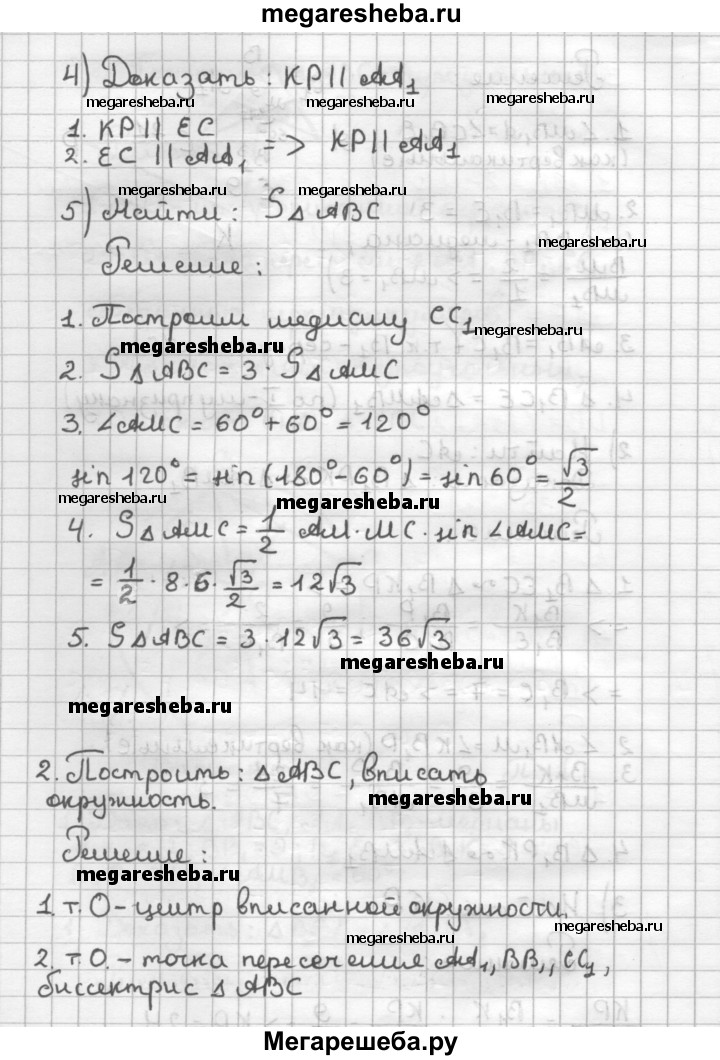 megaresheba.ru
4) Доказать: KP || AA₁
megaresheba.ru megaresheba.ru megaresheba.ru
1. KP || EC
2. EC || AA₁ => KP || AA₁
megaresheba.ru megaresheba.ru
5) Найти: S△ABC
megaresheba.ru
Решение:
1. Построим медиану CC₁
megaresheba.ru
megaresheba.ru
2. S△ABC = 3 · S△AMC
3. ∠AMC = 60° + 60° = 120°
sin 120° = sin (180° - 60°) = sin 60° = √3/2
megaresheba.ru megaresheba.ru megaresheba.ru
4. S△AMC = 1/2 AM · MC · sin ∠AMC =
= 1/2 · 8 · 6 · √3/2 = 12√3
5. S△ABC = 3 · 12√3 = 36√3
megaresheba.ru
megaresheba.ru
2. Построить: △ABC, вписать
окружность.
megaresheba.ru
Решение:
megaresheba.ru
1. т. O - центр вписанной окружности.
megaresheba.ru megaresheba.ru
2. т. O. - точка пересечения AA₁, BB₁, CC₁,
биссектрис △ABC
Мегарешеба.ру